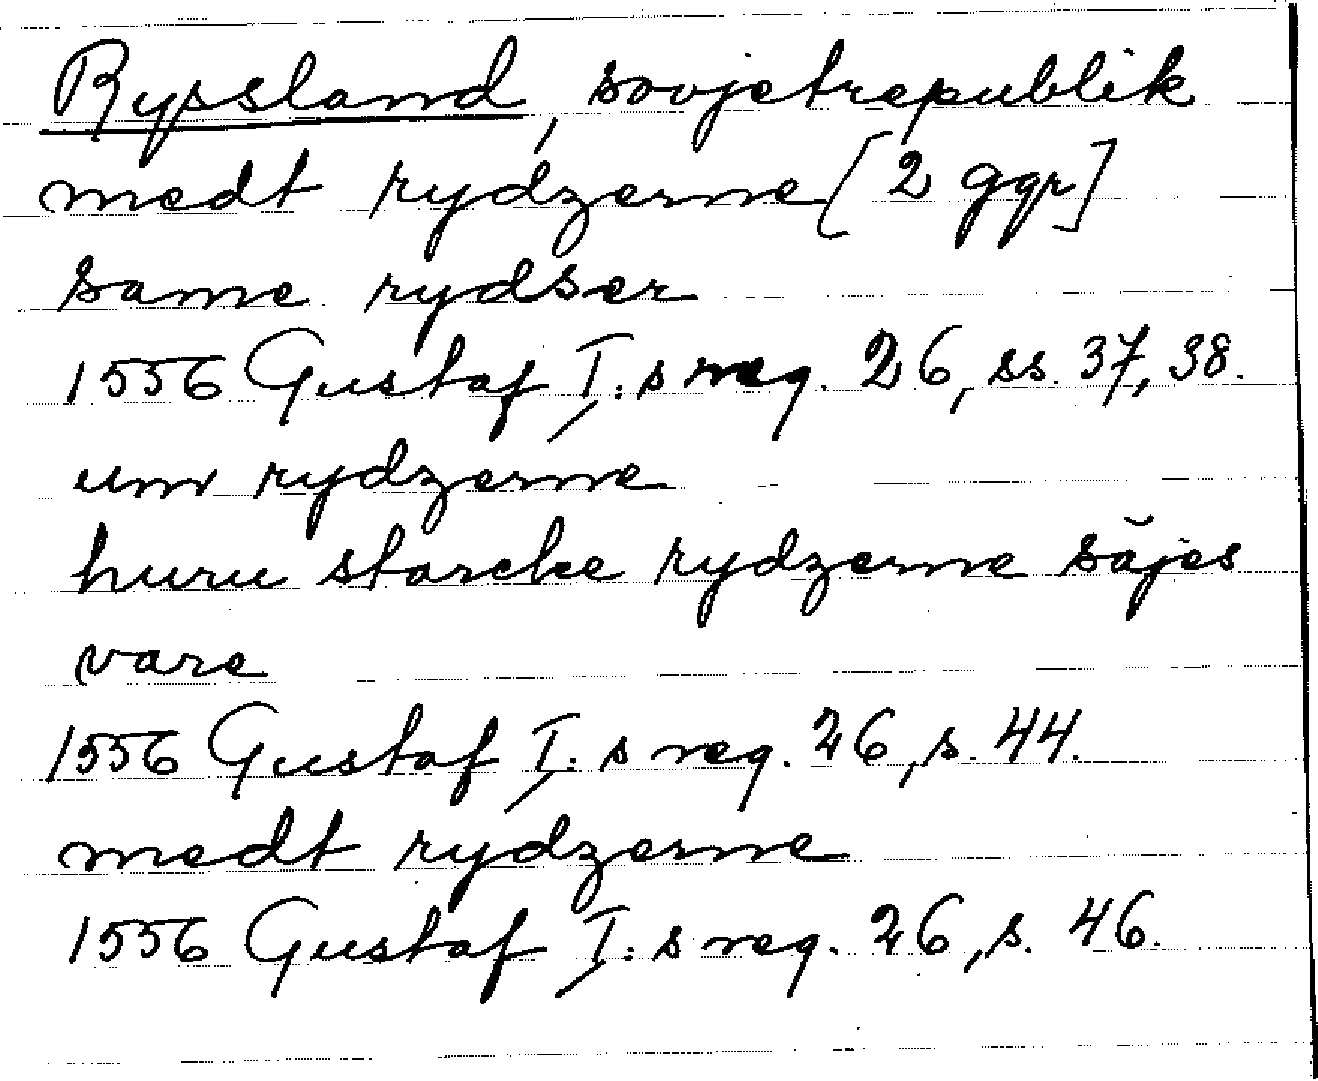 Ryssland, sovjetrepublik
medt rydzerne [2 ggr]
same rydser
1556 Gustaf I:s reg. 26, ss. 37, 38.
um rydzerne
huru starcke rydzerne säjes
vare
1556 Gustaf I:s reg. 26, s. 44.
medt rydzerne
1556 Gustaf I:s reg. 26, s. 46.